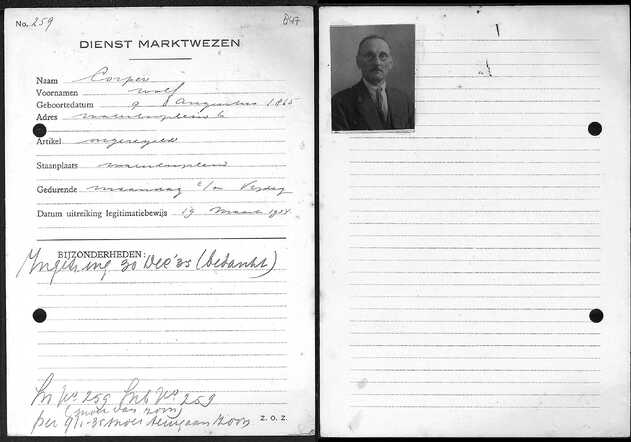 No. 259 B47
DIENST MARKTWEZEN
Naam Corper
Voornamen Wolf
Geboortedatum 9 Augustus 1865
Adres
Artikel ongeregeld
Staanplaats
Gedurende maandag t/m Vrijdag
Datum uitreiking legitimatiebewijs 19 Maart 1934
BIJZONDERHEDEN:
Ingetr. ing 30 Dec '35 (bedankt)
259 259
van zoon)
per 9/1-35 aan zoon
Z. O. Z.